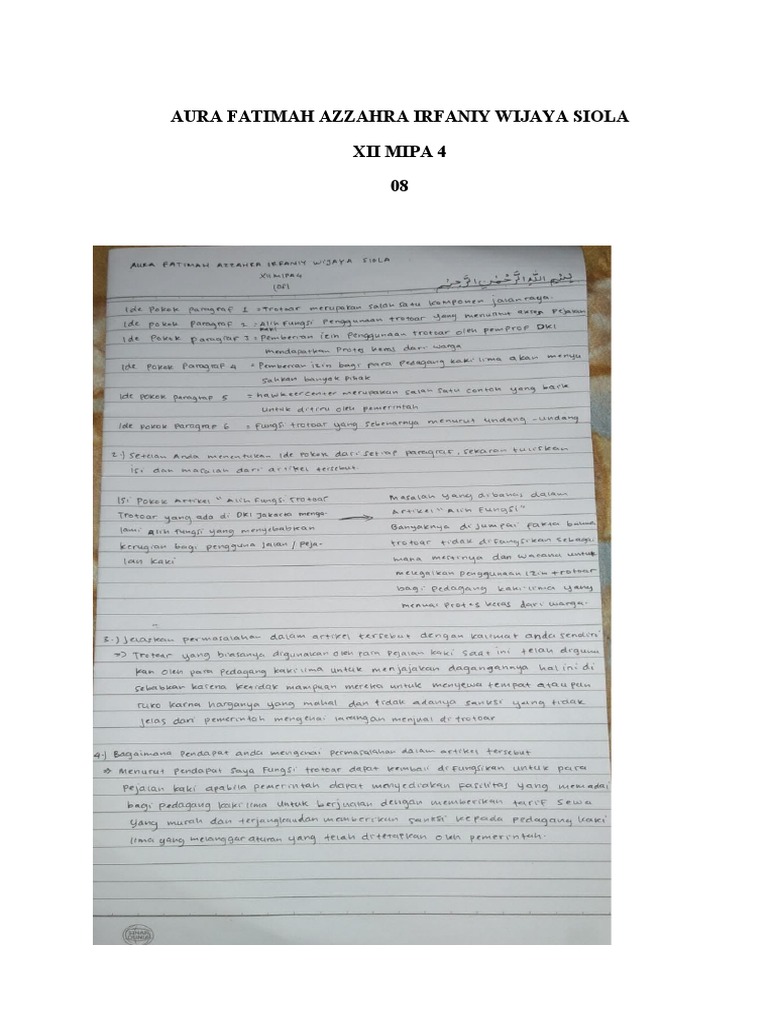 AURA FATIMAH AZZAHRA IRFANIY WIJAYA SIOLA
XII MIPA 4
08
AURA FATIMAH AZZAHRA IRFANIY WIJAYA SIOLA
XII MIPA 4
(08)
بِسْمِ اللَّهِ الرَّحْمَنِ الرَّحِيْمِ
Ide Pokok Paragraf 1 = Trotoar merupakan salah satu komponen jalan raya.
Ide pokok Paragraf 2 = Alih Fungsi Penggunaan trotoar yang menuntut akses Pejalan
kaki
Ide Pokok Paragraf 3 = Pemberian izin Penggunaan trotoar oleh pemprof DKI
mendapatkan Protes keras dari warga
Ide Pokok Paragraf 4 = Pemberian izin bagi para Pedagang kaki lima akan menyu
sahkan banyak pihak
Ide Pokok paragraf 5 = hawkeer center merupakan salah satu contoh yang baik
untuk ditiru oleh pemerintah
Ide Pokok Paragraf 6 = Fungsi trotoar yang sebenarnya menurut undang-undang
2.) Setelah Anda menentukan Ide Pokok dari setiap paragraf, sekaran tuliskan
isi dan masalah dari artikel tersebut.
Isi Pokok Artikel "Alih Fungsi Trotoar
Trotoar yang ada di DKI Jakarta menga-
lami alih fungsi yang menyebabkan
kerugian bagi pengguna jalan / peja-
lan kaki
Masalah yang dibahas dalam
Artikel "Alih Fungsi"
Banyaknya di jumpai fakta bahwa
trotoar tidak difungsikan sebagai
mana mestinya dan wacana untuk
melegalkan penggunaan izin trotoar
bagi pedagang kaki lima yang
menuai Protes keras dari warga.
3.) Jelaskan permasalahan dalam artikel tersebut dengan kalimat anda sendiri
=> Trotoar yang biasanya digunakan oleh para Pejalan kaki saat ini telah diguna
kan oleh para pedagang kaki lima untuk menjajakan dagangannya hal ini di
sebabkan karena ketidak mampuan mereka untuk menyewa tempat ataupun
ruko karna harganya yang mahal dan tidak adanya sanksi yang tidak
jelas dari pemerintah mengenai larangan menjual di trotoar
4.) Bagaimana Pendapat anda mengenai permasalahan dalam artikel tersebut
=> Menurut Pendapat saya Fungsi trotoar dapat kembali di Fungsikan untuk para
Pejalan kaki apabila pemerintah dapat menyediakan Fasilitas yang memadai
bagi pedagang kaki lima untuk berjualan dengan memberikan tarif sewa
yang murah dan terjangkau dan memberikan sanksi kepada pedagang kaki
lima yang melanggar aturan yang telah ditetapkan oleh pemerintah.